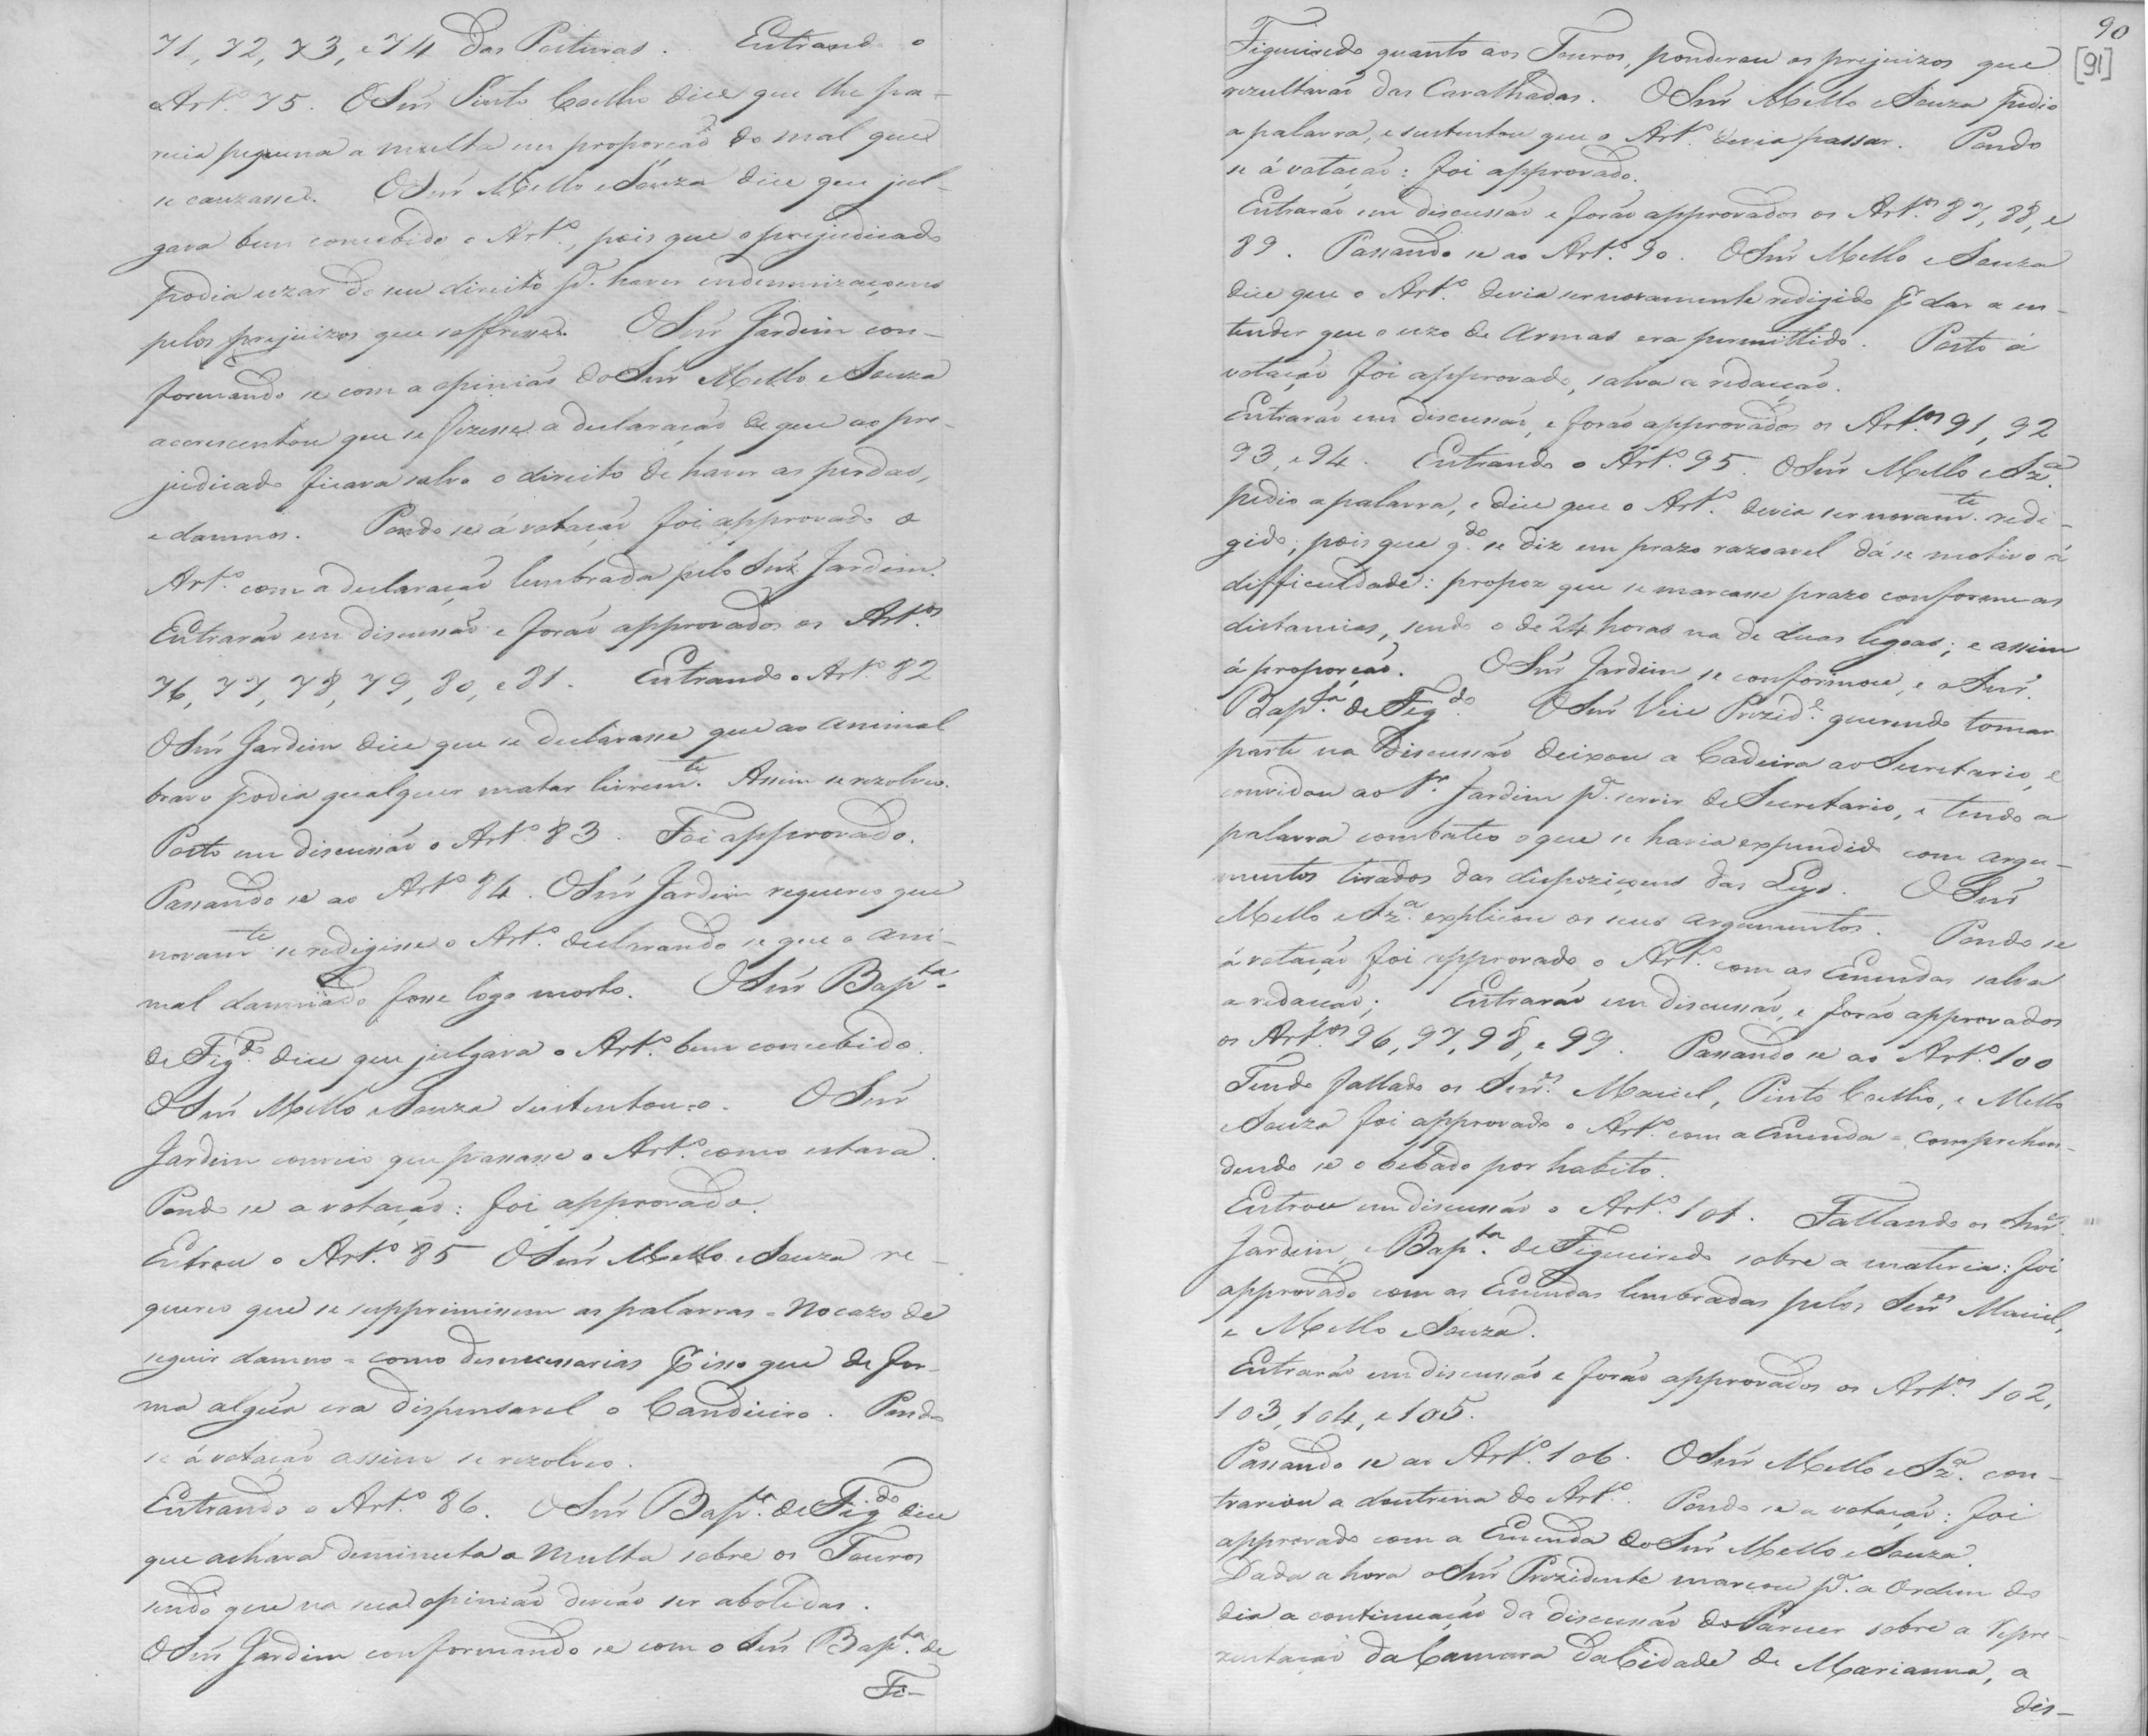 71, 72, 73, e 74 das Posturas. Entrando o
Art.º 75. O Snr̃ Pinto Coelho dice que lhe pa-
recia piquena a multa em proporção do mal que
se cauzasse. O Snr̃ Mello e Souza dice que jul-
gava bem concebido o Art.º, pois que o prejudicado
podia uzar do seu direito p.ª haver endemnizaçoens
pelos prejuizos que soffresse. O Snr̃ Jardim con-
formando se com a opinião do Snr̃ Mello e Souza
accrescentou que se fizesse a declaração de que ao pre-
judicado ficava salvo o direito de haver as perdas,
e damnos. Pondo se á votação foi approvado o
Art.º com a declaração lembrada pelo Snr̃ Jardim.
Entrarão em discussão e forão approvados os Art.os
76, 77, 78, 79, 80, e 81. Entrando o Art.º 82
O Snr̃ Jardim dice que se declarasse que ao animal
bravo podia qualquer matar livrem.te Assim se rezolveo.
Posto em discussão o Art.º 83. Foi approvado.
Passando se ao Art.º 84. O Snr̃ Jardim requereo que
novam.te se redigisse o Art.º declarando se que o ani-
mal damnado fosse logo morto. O Snr̃ Bap.ta
de Fig.do dice que julgava o Art.º bem concebido.
O Snr̃ Mello e Souza sustentou-o. O Snr̃
Jardim conveio que passasse o Art.º como estava.
Pondo se a votação: foi approvado.
Entrou o Art.º 85 O Snr̃ Mello e Souza re-
quereo que se supprimissem as palavras = No cazo de
seguir damno = como desnecessarias p̃ isso que de for-
ma algũa era dispensavel o Candieiro. Pondo
se á votação assim se rezolveo.
Entrando o Art.º 86. O Snr̃ Bap.ta de Fig.do dice
que achava deminuta a Multa sobre os Touros
sendo que na sua opinião devião ser abolidas.
O Snr̃ Jardim conformando se com o Snr̃ Bap.ta de
Fi-
90
[91]
Figueiredo quanto aos Touros, ponderou os prejuizos que
rezultavão das Cavalhadas. O Snr̃ Mello e Souza pedio
a palavra, e sustentou que o Art.º devia passar. Pondo
se á votação: foi approvado.
Entrarão em discussão e forão approvados os Art.os 87, 88, e
89. Passando se ao Art.º 90. O Snr̃ Mello e Souza
dice que o Art.º devia ser novamente redigido p̃ dar a en-
tender que o uzo de Armas era permittido. Posto á
votação foi approvado, salva a redacção.
Entrarão em discussão, e forão approvados os Art.os 91, 92
93, e 94. Entrando o Art.º 95. O Snr̃ Mello e Sz.ª
pedio a palavra, e dice que o Art.º devia ser novam.te redi-
gido, pois que q.do se diz em prazo razoavel dá se motivo á
difficuldade: propoz que se marcasse prazo conforme as
distancias, sendo o de 24 horas na de duas legoas; e assim
á proporção. O Snr̃ Jardim se conformou, e o Snr̃
Bap.ta de Fig.do O Snr̃ Vice Prezid.e querendo tomar
parte na Discussão deixou a Cadeira ao Secretario, e
convidou ao Sr. Jardim p.ª servir de Secretario, e tendo a
palavra combateo o que se havia expendido com argu-
mentos tirados das dispoziçoens das Leys. O Snr̃
Mello e Sz.ª explicou os seus argumentos. Pondo se
á votação foi approvado o Art.º com as Emendas salva
a redacção; Entrarão em discussão, e forão approvados
os Art.os 96, 97, 98, e 99. Passando se ao Art.º 100
Tendo fallado os Snr.es Maciel, Pinto Coelho, e Mello
e Souza foi approvado o Art.º com a Emenda = Comprehen-
dendo se o bebado por habito.
Entrou em discussão o Art.º 101. Fallando os Snr.es
Jardim, e Bap.ta de Figueiredo sobre a materia: foi
approvado com as Emendas lembradas pelos Snr.es Maciel,
e Mello e Souza.
Entrarão em discussão e forão approvados os Art.os 102,
103, 104, e 105.
Passando se ao Art.º 106. O Snr̃ Mello e Sz.ª con-
trariou a doutrina do Art.º. Pondo se a votação: foi
approvado com a Emenda do Snr̃ Mello e Souza.
Dada a hora o Snr̃ Prezidente marcou p.ª a Ordem do
dia a continuação da discussão do Parecer sobre a Repre-
zentação da Camara da Cidade de Marianna, a
dis-